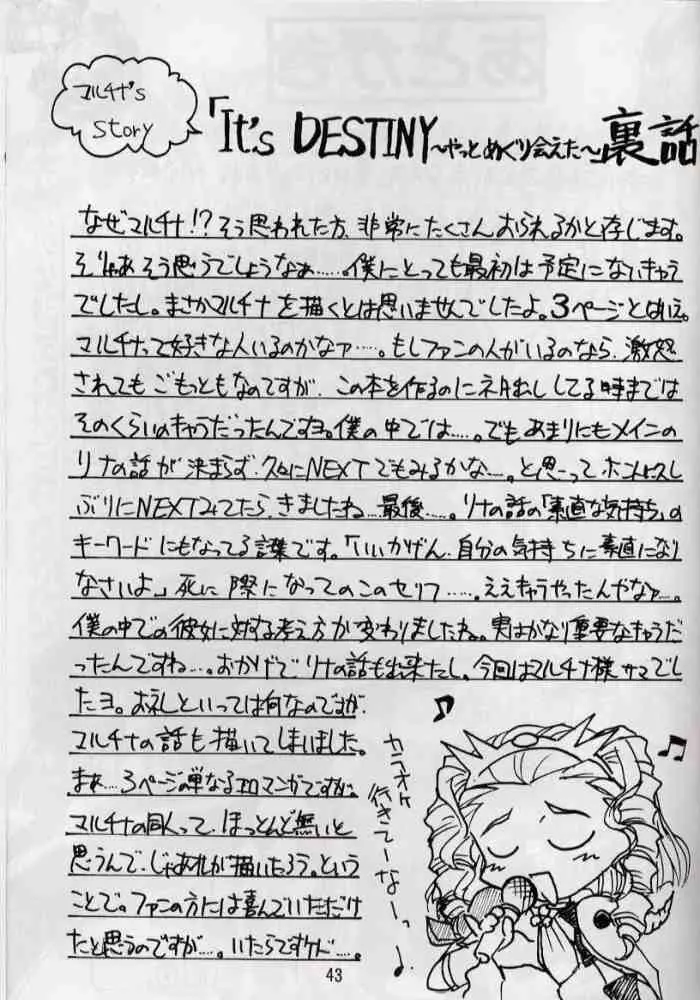 マルチナ's
Story
「It's DESTINY〜やっとめぐり会えた〜」裏話
なぜマルチナ!?そう思われた方、非常にたくさんおられるかと存じます。
そりゃあそう思うでしょうなぁ……。僕にとっても最初は予定にないキャラ
でしたし。まさかマルチナを描くとは思いませんでしたよ。3ページとはいえ。
マルチナって好きな人いるのかなァ……。もしファンの人がいるのなら、激怒
されてもごもっともなのですが、この本を作るのにネタ出ししてる時までは
そのくらいのキャラだったんですヨ。僕の中では……。でもあまりにもメインの
リナの話が決まらず、久々にNEXTでもみるかな……。と思ってホント久し
ぶりにNEXTみてたら、きましたね…最後……。リナの話の「素直な気持ち」の
キーワードにもなってる言葉です。「いいかげん、自分の気持ちに素直になり
なさいよ」死に際になってのこのセリフ……。ええキャラやったんやなァ…。
僕の中での彼女に対する考え方が変わりましたね。実はかなり重要なキャラだ
ったんですね…。おかげでリナの話も出来たし。今回はマルチナ様サマでし
たヨ。お礼といっては何なのですが、
マルチナの話も描いてしまいました。
まぁ…3ページの単なるエロマンガですが。
マルチナの同人って、ほとんど無いと
思うんで、じゃあオレが描いたろう。という
ことで。ファンの方には喜んでいただけ
たと思うのですが……。いたらですケド……。
カラオケ
行きてーなーっ
43